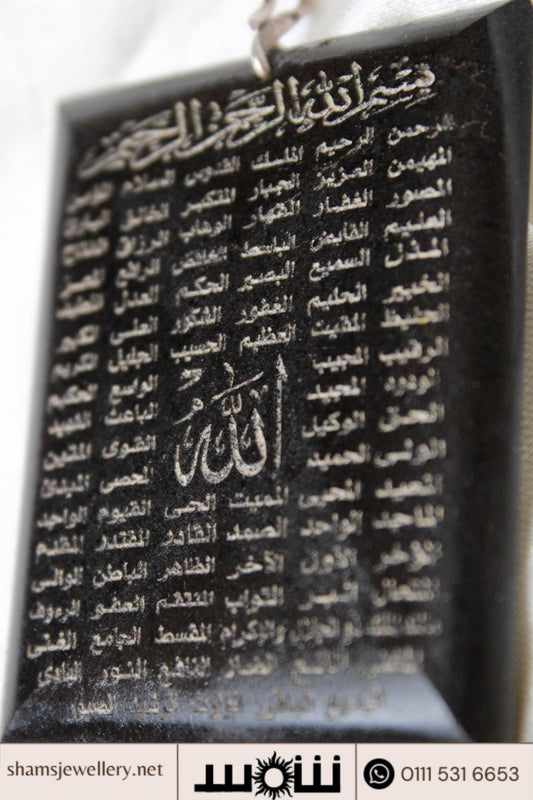 بسم الله الرحمن الرحيم
الرحمن الرحيم الملك القدوس السلام المؤمن
المهيمن العزيز الجبار المتكبر الخالق
المصور الغفار القهار الوهاب الرزاق الفتاح
العليم القابض الباسط الخافض الرافع
المذل السميع البصير الحكم العدل
الخبير الحليم الغفور الشكور العلى
الحفيظ المقيت العظيم الحسيب الجليل الكريم
الرقيب المجيب الواسع الحكيم
الودود المجيد الباعث الشهيد
الحق الوكيل القوى المتين
الولى الحميد المحصى
الله
المعيد المحيى المميت الحى القيوم الواجد
الماجد الواحد الصمد القادر المقتدر المقدم
المؤخر الأول الآخر الظاهر الباطن الوالى
المتعال البر التواب المنتقم العفو الرءوف
ذو الجلال والإكرام المقسط الجامع الغنى
المانع الضار النافع النور الهادى
الصبور
shamsjewellery.net
شموس
0111 531 6653